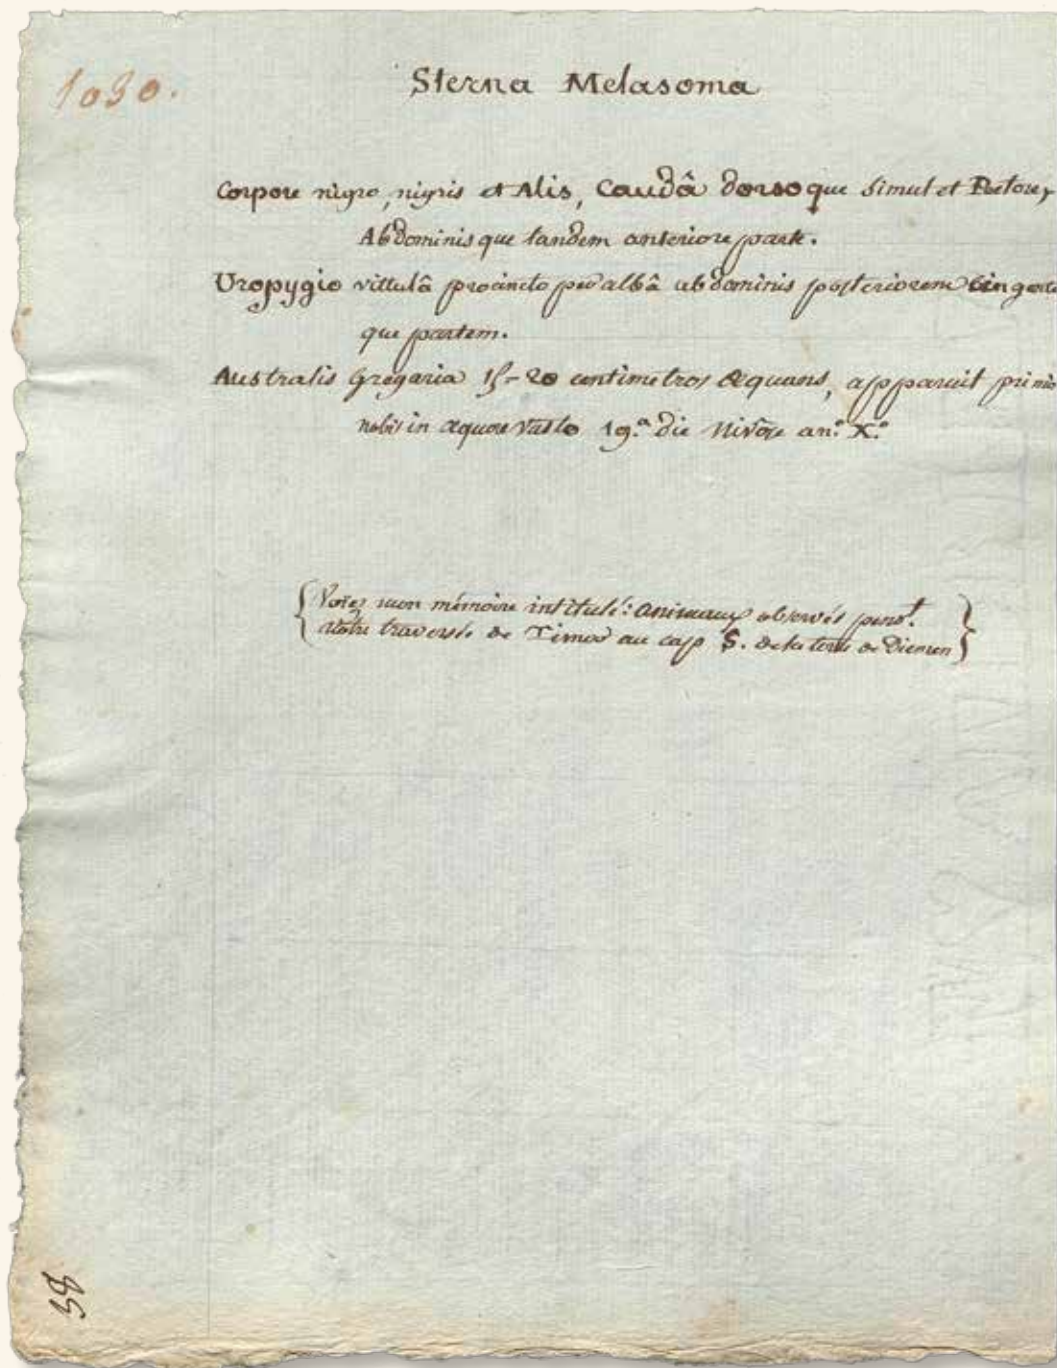 1030.
Sterna Melasoma
Corpore nigro, nigris et Alis, Caudâ dorsoque simul et Pectore,
Abdominisque tandem anteriore parte.
Uropygio vittulâ procincto per albâ abdominis posteriorem cingente
que partem.
Australis Gregaria 15-20 centimetros æquans, apparuit primo
nobis in æquore vasto 19.ª die Nivôse an.º X.º
Voïez mon mémoire intitulé: animaux observés pend.t
notre traversée de Timor au cap S. de la terre de Diemen
38